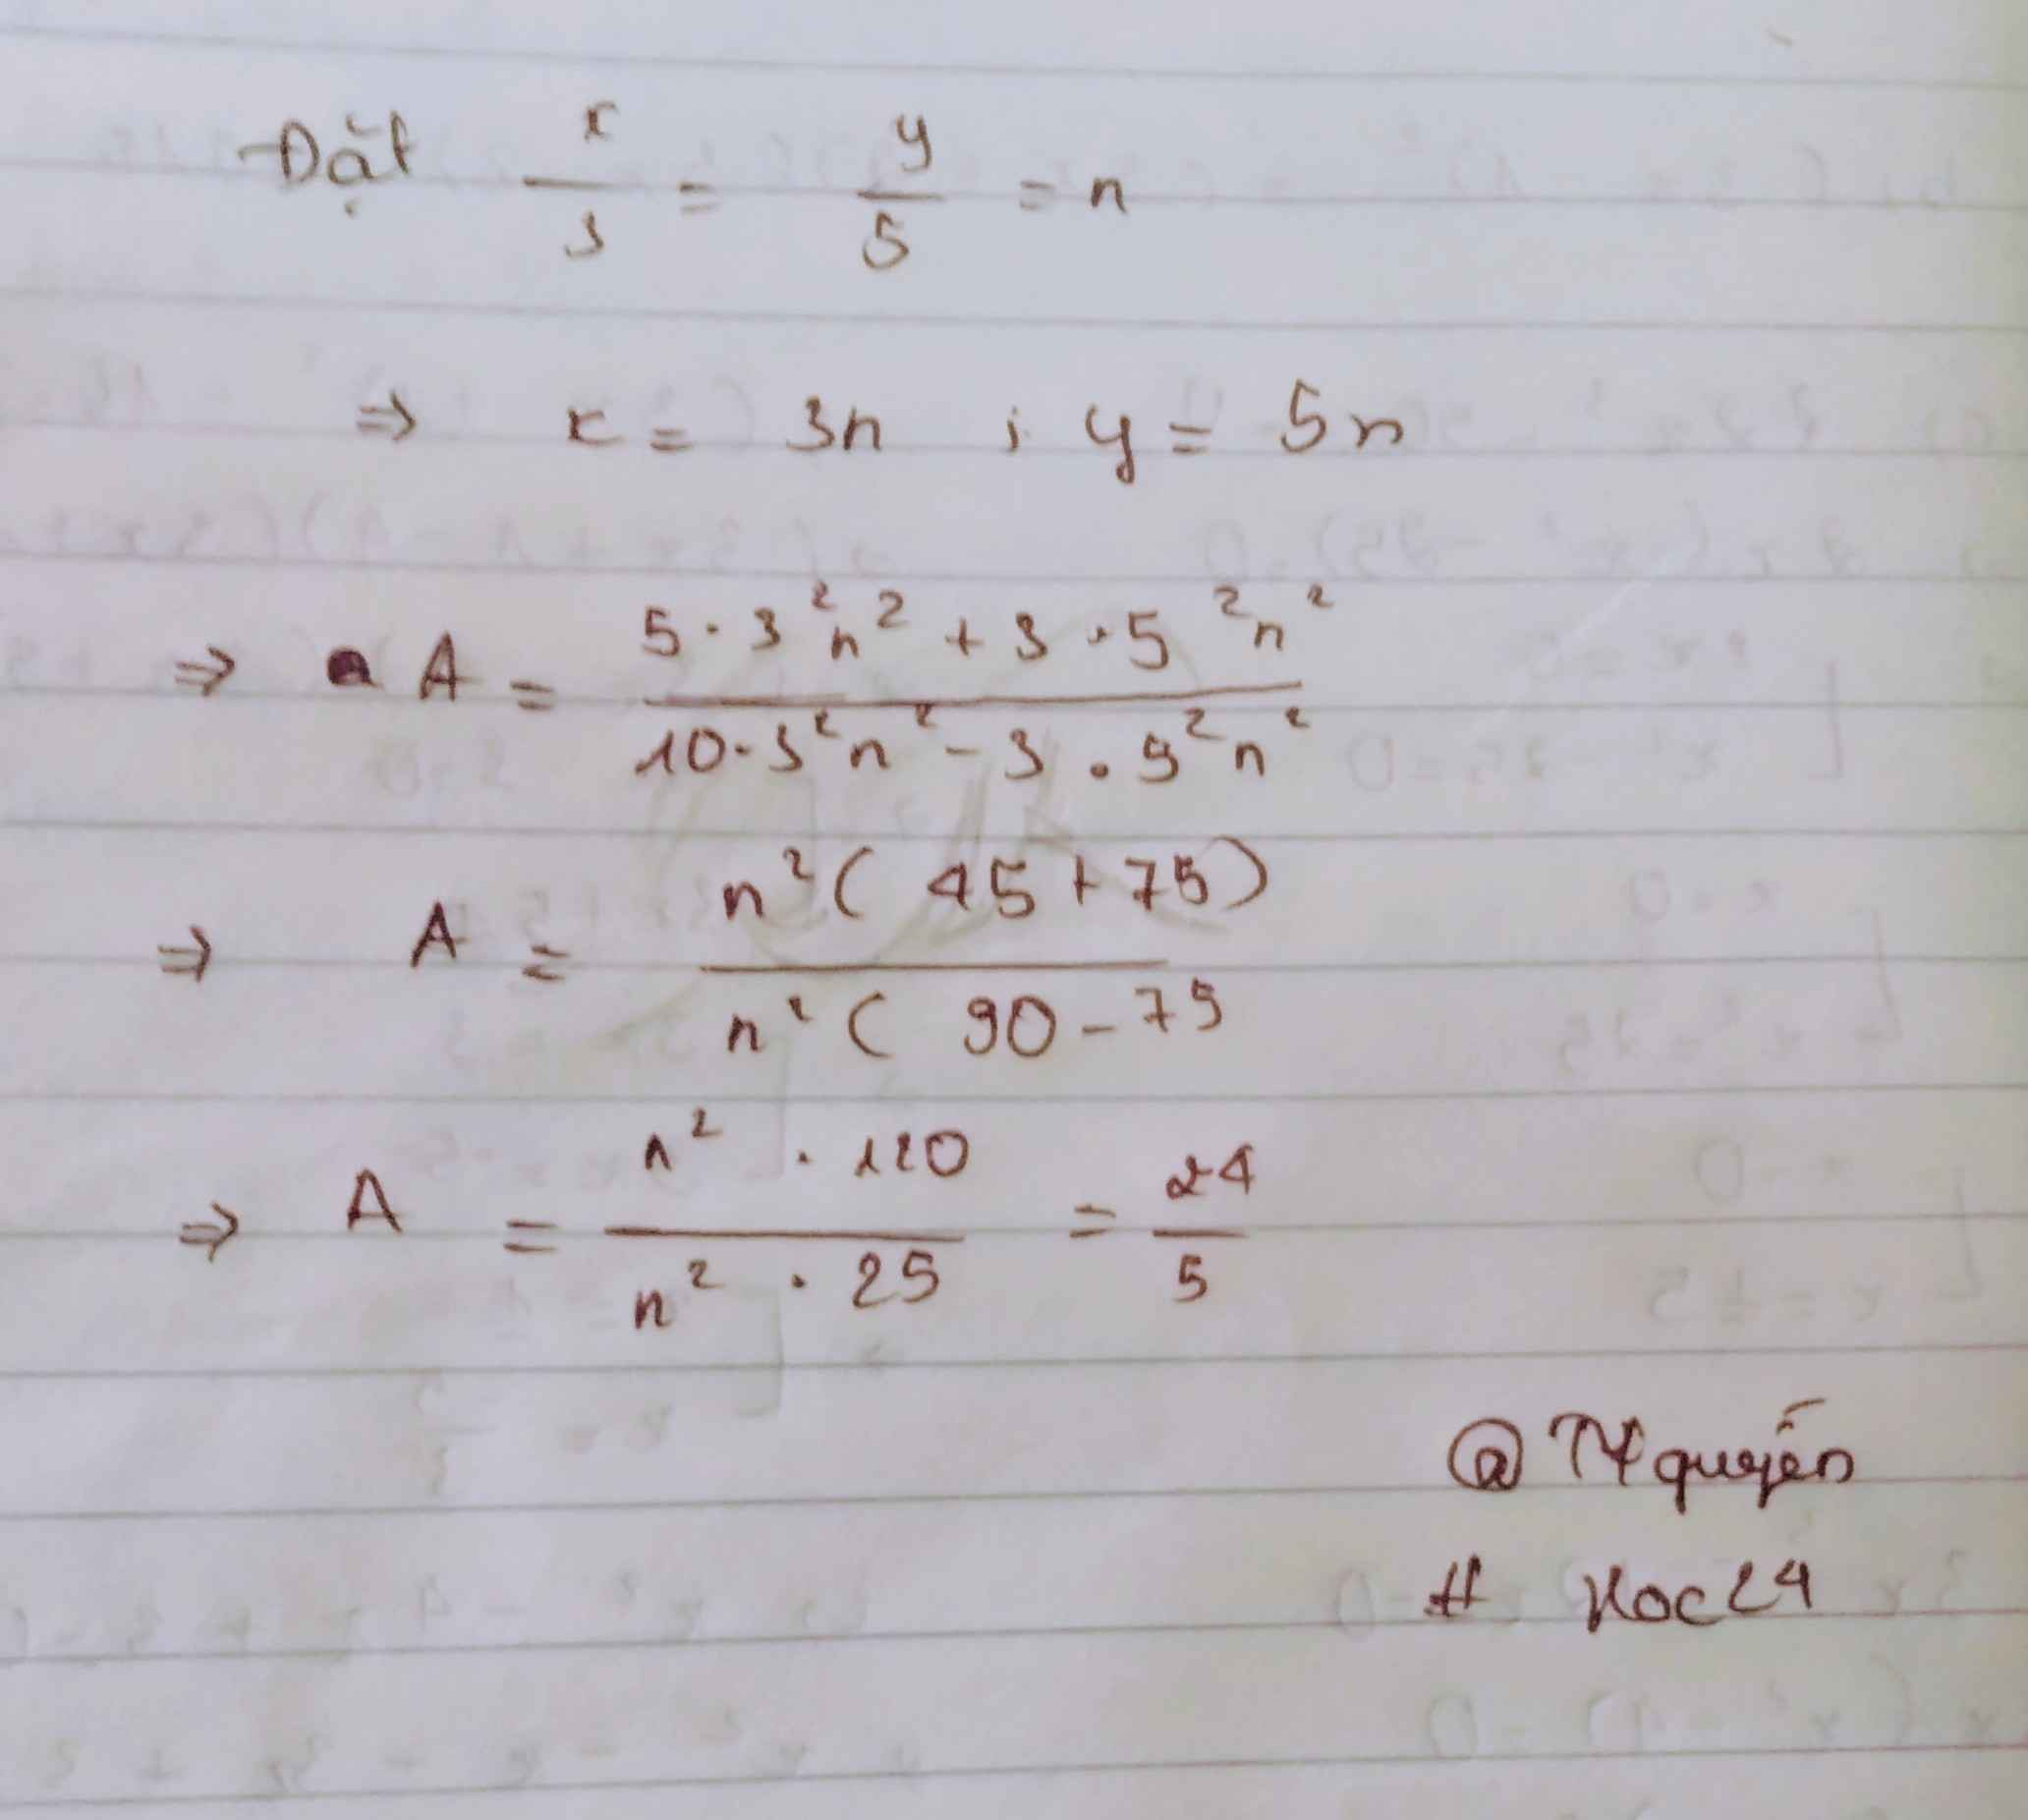 Đặt x/3 = y/5 = n
⇒ x = 3n ; y = 5n
⇒ A = (5·3²n² + 3·5²n²)/(10·3²n² - 3·5²n²)
⇒ A = n²(45+75)/n²(90-75
⇒ A = n²·120/n²·25 = 24/5
@ Nguyễn
# Hoc24